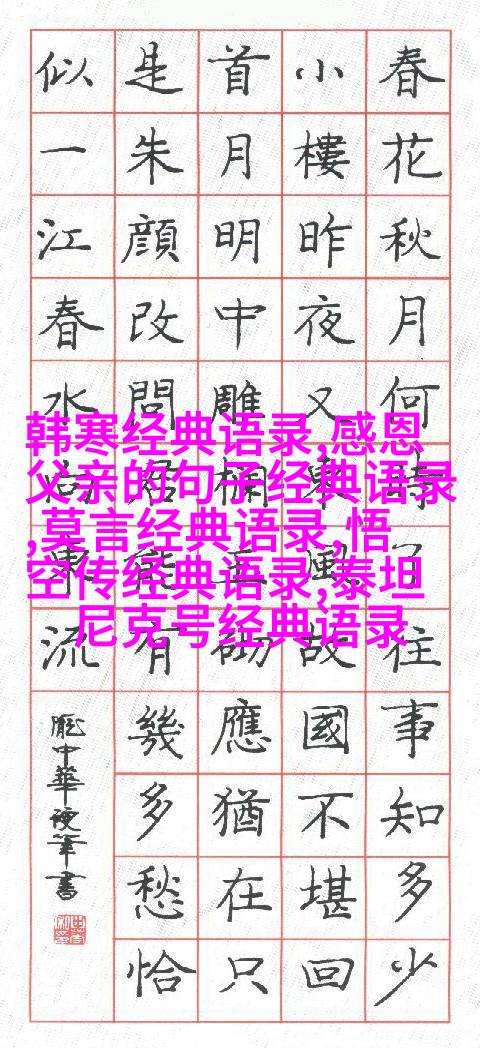 春花秋月何時了往事知多少
小樓昨夜又東風故國不堪回
首月明中雕欄玉砌應猶在只
是朱顔改問君能有幾多愁恰
似一江春水向東流
龐中華硬筆書
韩寒经典语录,感恩
父亲的句子经典语录
,莫言经典语录,悟
空传经典语录,泰坦
尼克号经典语录